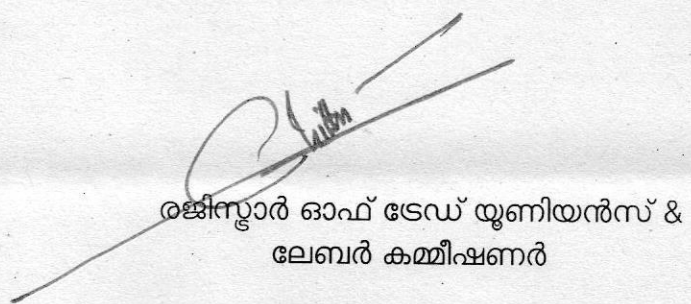 രജിസ്ട്രാർ ഓഫ് ട്രേഡ് യൂണിയൻസ് &
ലേബർ കമ്മീഷണർ